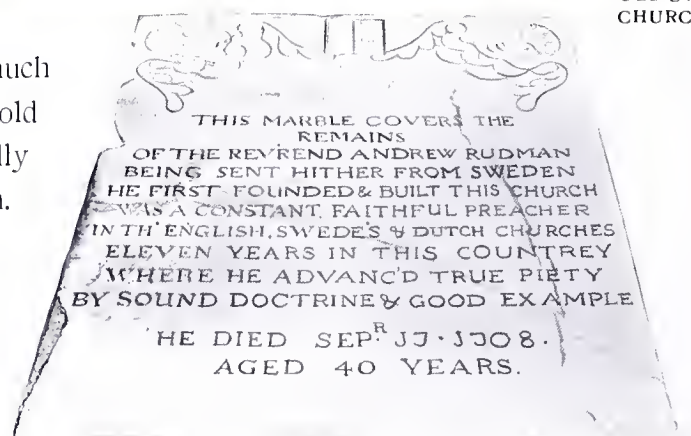 CHURC
uch
old
lly
THIS MARBLE COVERS THE
REMAINS
OF THE REV'REND ANDREW RUDMAN
BEING SENT HITHER FROM SWEDEN
HE FIRST FOUNDED & BUILT THIS CHURCH
WAS A CONSTANT FAITHFUL PREACHER
IN TH' ENGLISH, SWEDE'S & DUTCH CHURCHES
ELEVEN YEARS IN THIS COUNTREY
WHERE HE ADVANC'D TRUE PIETY
BY SOUND DOCTRINE & GOOD EXAMPLE
HE DIED SEP.R 17 · 1708.
AGED 40 YEARS.